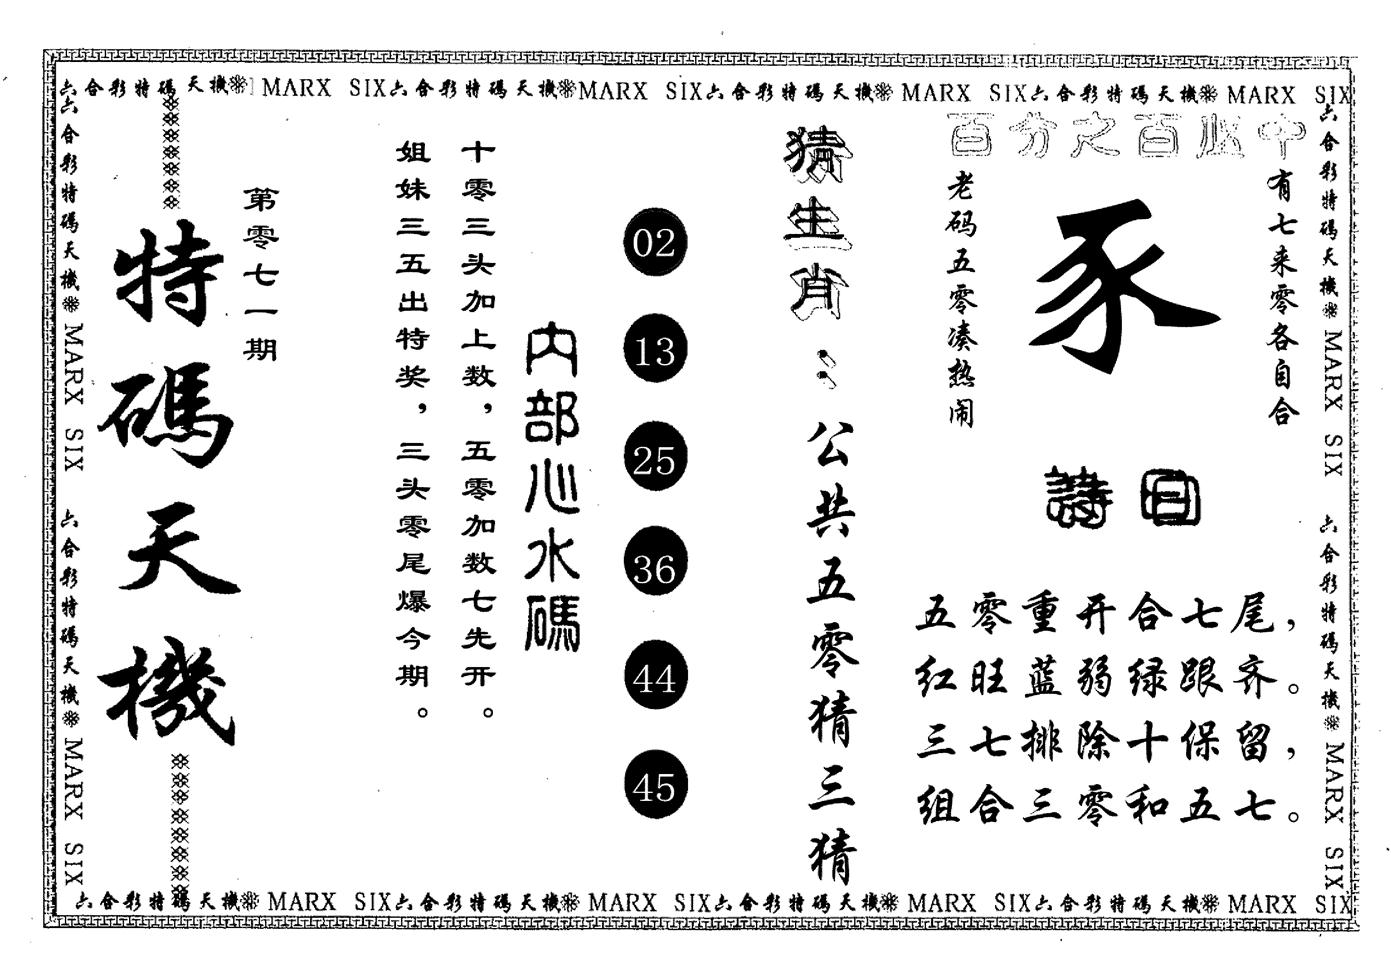 六合彩特碼天機 MARX SIX六合彩特碼天機 MARX SIX六合彩特碼天機 MARX SIX六合彩特碼天機 MARX SIX
百分之百必中
有七来零各自合
豕
老码五零凑热闹
詩曰
五零重开合七尾，
红旺蓝弱绿跟齐。
三七排除十保留，
组合三零和五七。
猜生肖：公共五零猜三猜
02
13
25
36
44
45
内部心水碼
十零三头加上数，五零加数七先开。
姐妹三五出特奖，三头零尾爆今期。
第零七一期
特碼天機
六合彩特碼天機 MARX SIX 六合彩特碼天機 MARX SIX
六合彩特碼天機 MARX SIX 六合彩特碼天機 MARX SIX
六合彩特碼天機 MARX SIX六合彩特碼天機 MARX SIX六合彩特碼天機 MARX SIX六合彩特碼天機 MARX SIX